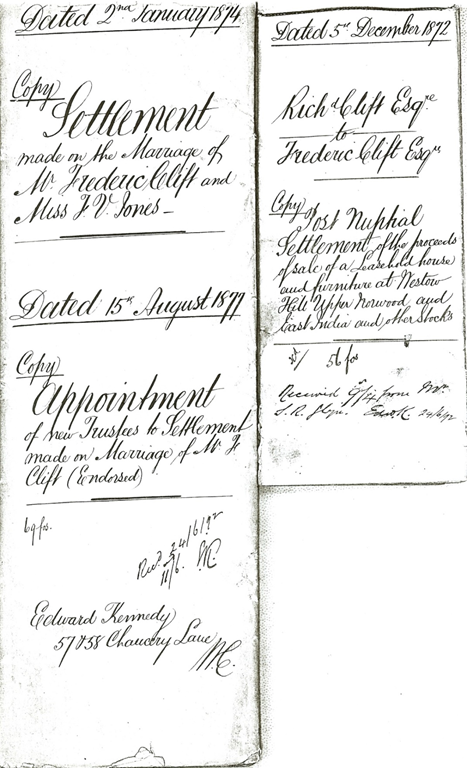 Dated 2nd January 1874
Copy
Settlement
made on the Marriage of
Mr. Frederic Clift and
Miss F V. Jones
Dated 15th August 1877
Copy
Appointment
of new Trustees to Settlement
made on Marriage of Mr F
Clift (Endorsed)
69 fos.
24/6/92
11/6.
Edward Kennedy
57 & 58 Chancery Lane
W.C.
Dated 5th December 1872
Richd Clift Esqre
to
Frederic Clift Esqre
Copy of
Post Nuptial
Settlement of the proceeds
of sale of a Leasehold house
and furniture at Westow
Hill Upper Norwood and
East India and other Stocks
56 fos
Received from Mr.
24/6/92